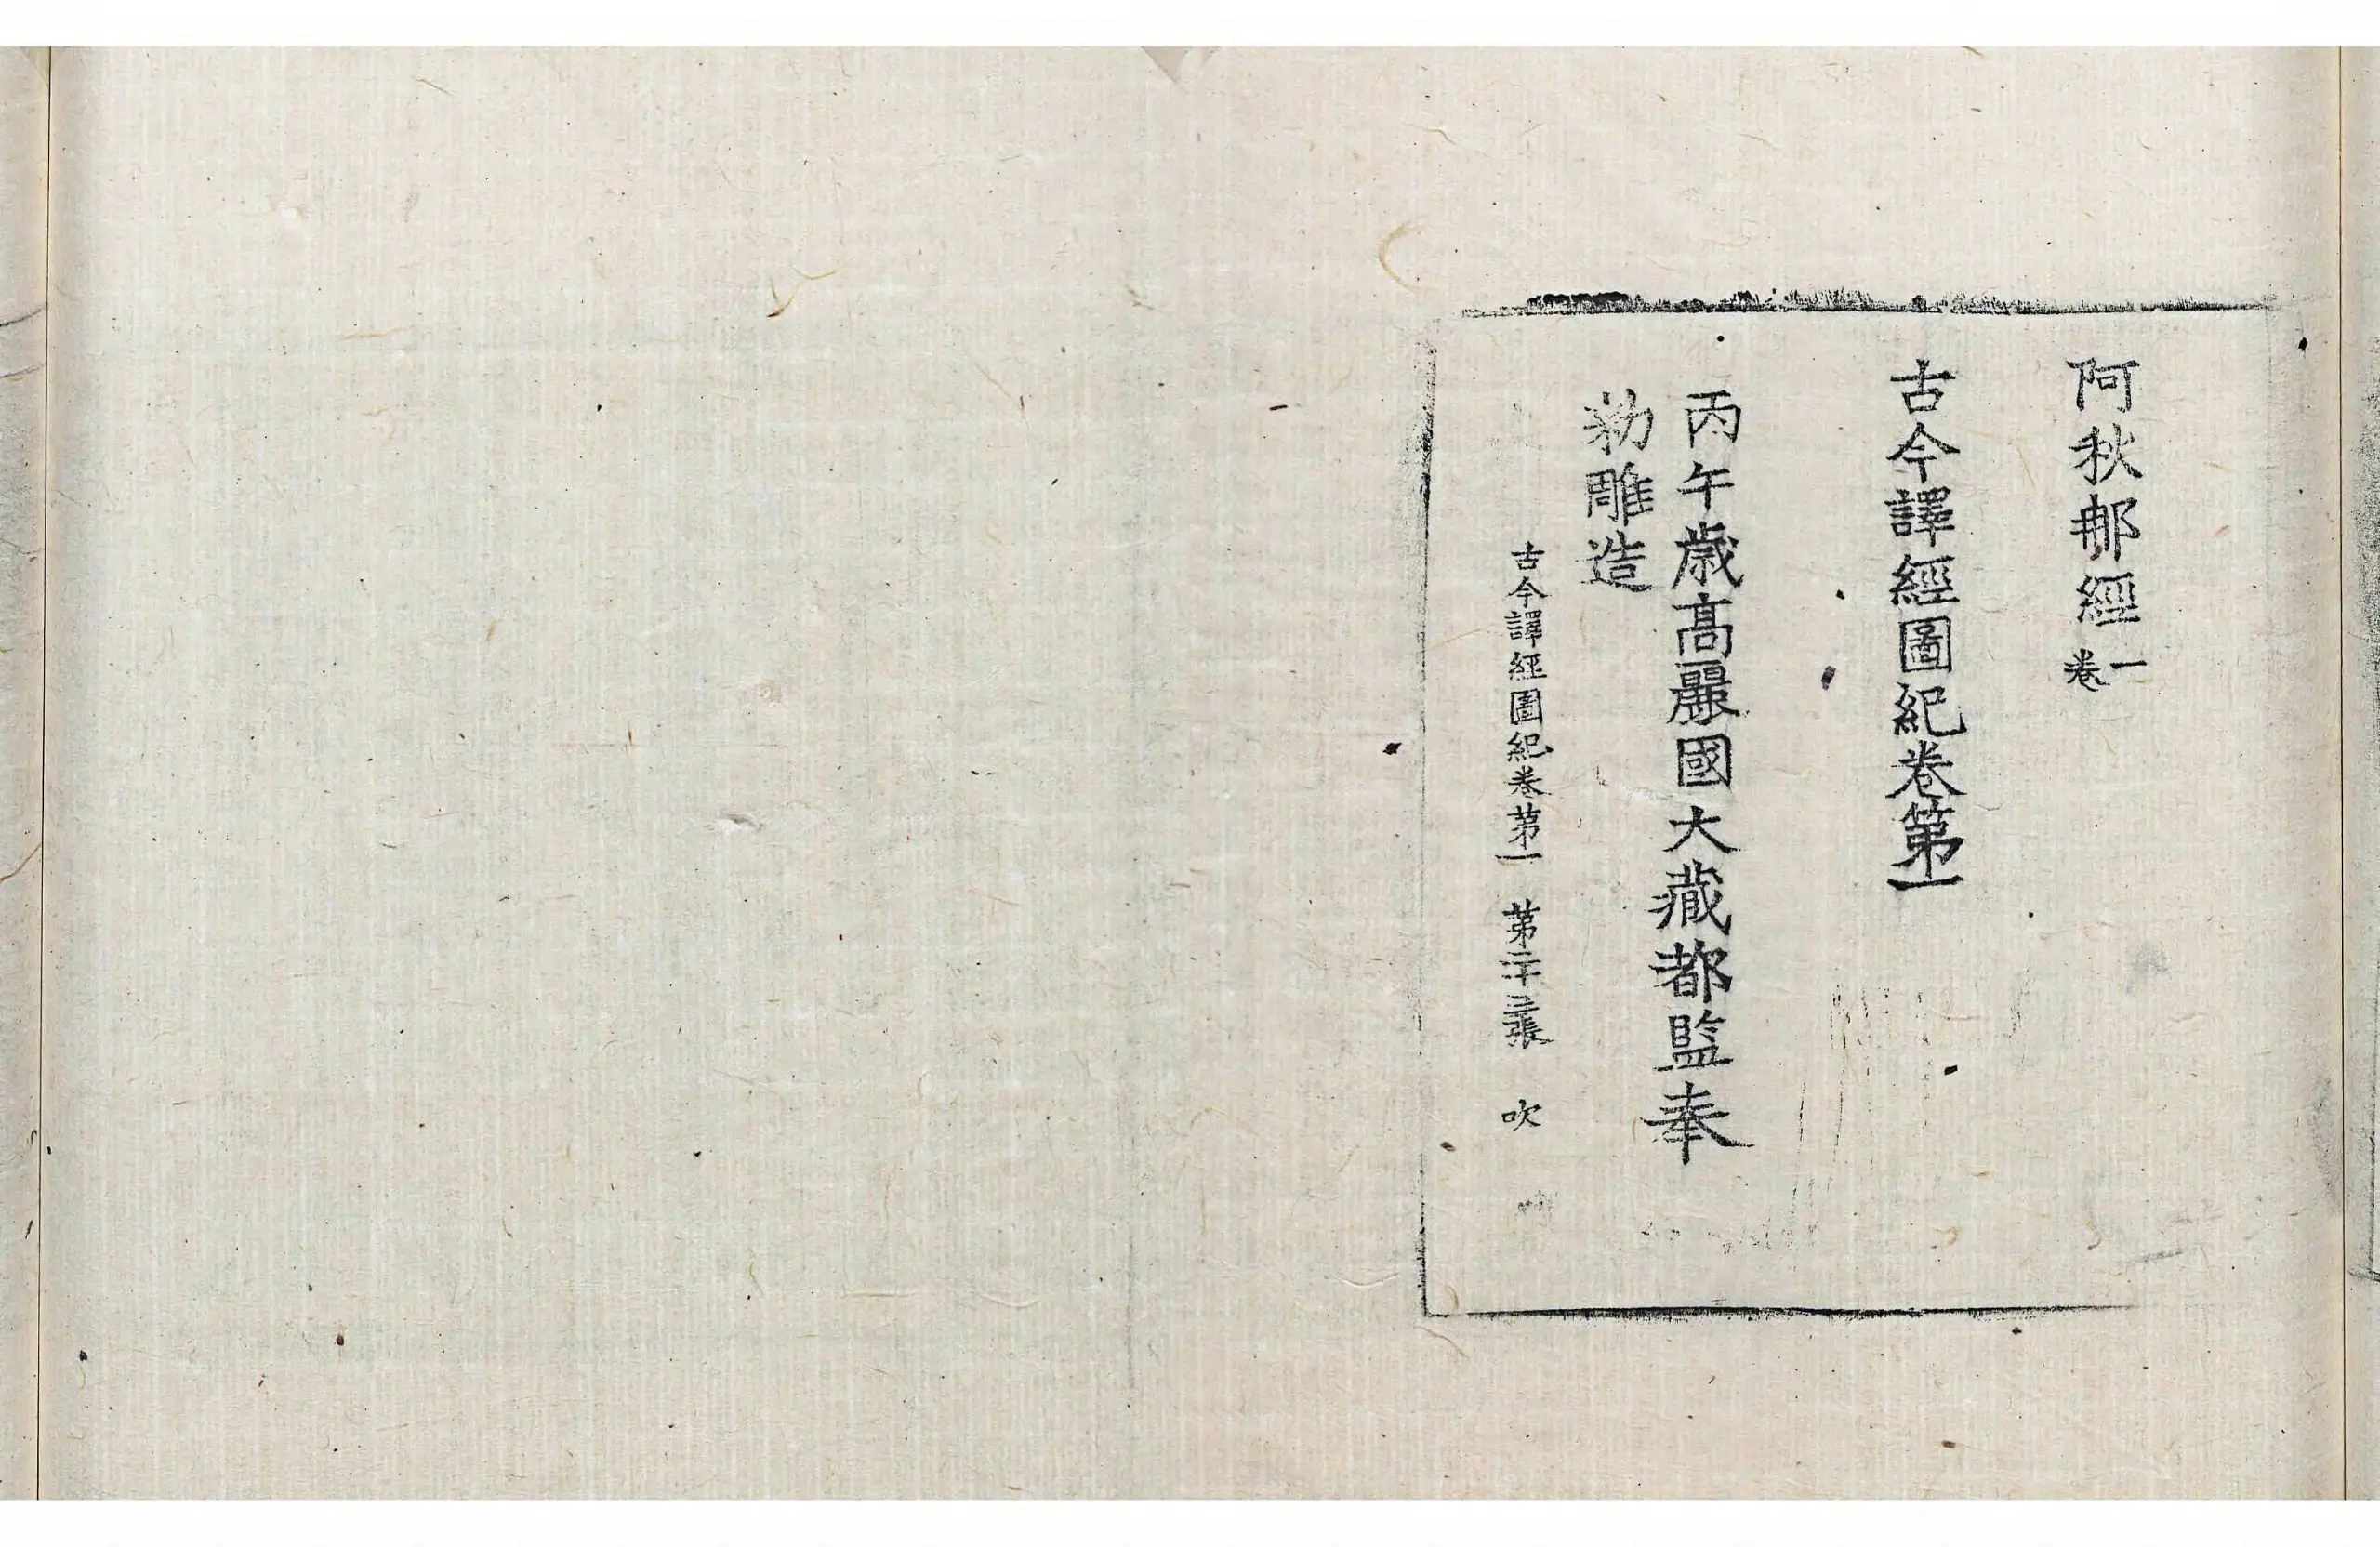 阿秋那經一卷
古今譯經圖紀卷第一
丙午歲高麗國大藏都監奉
勑雕造
古今譯經圖紀卷第一 第二十三張 吹